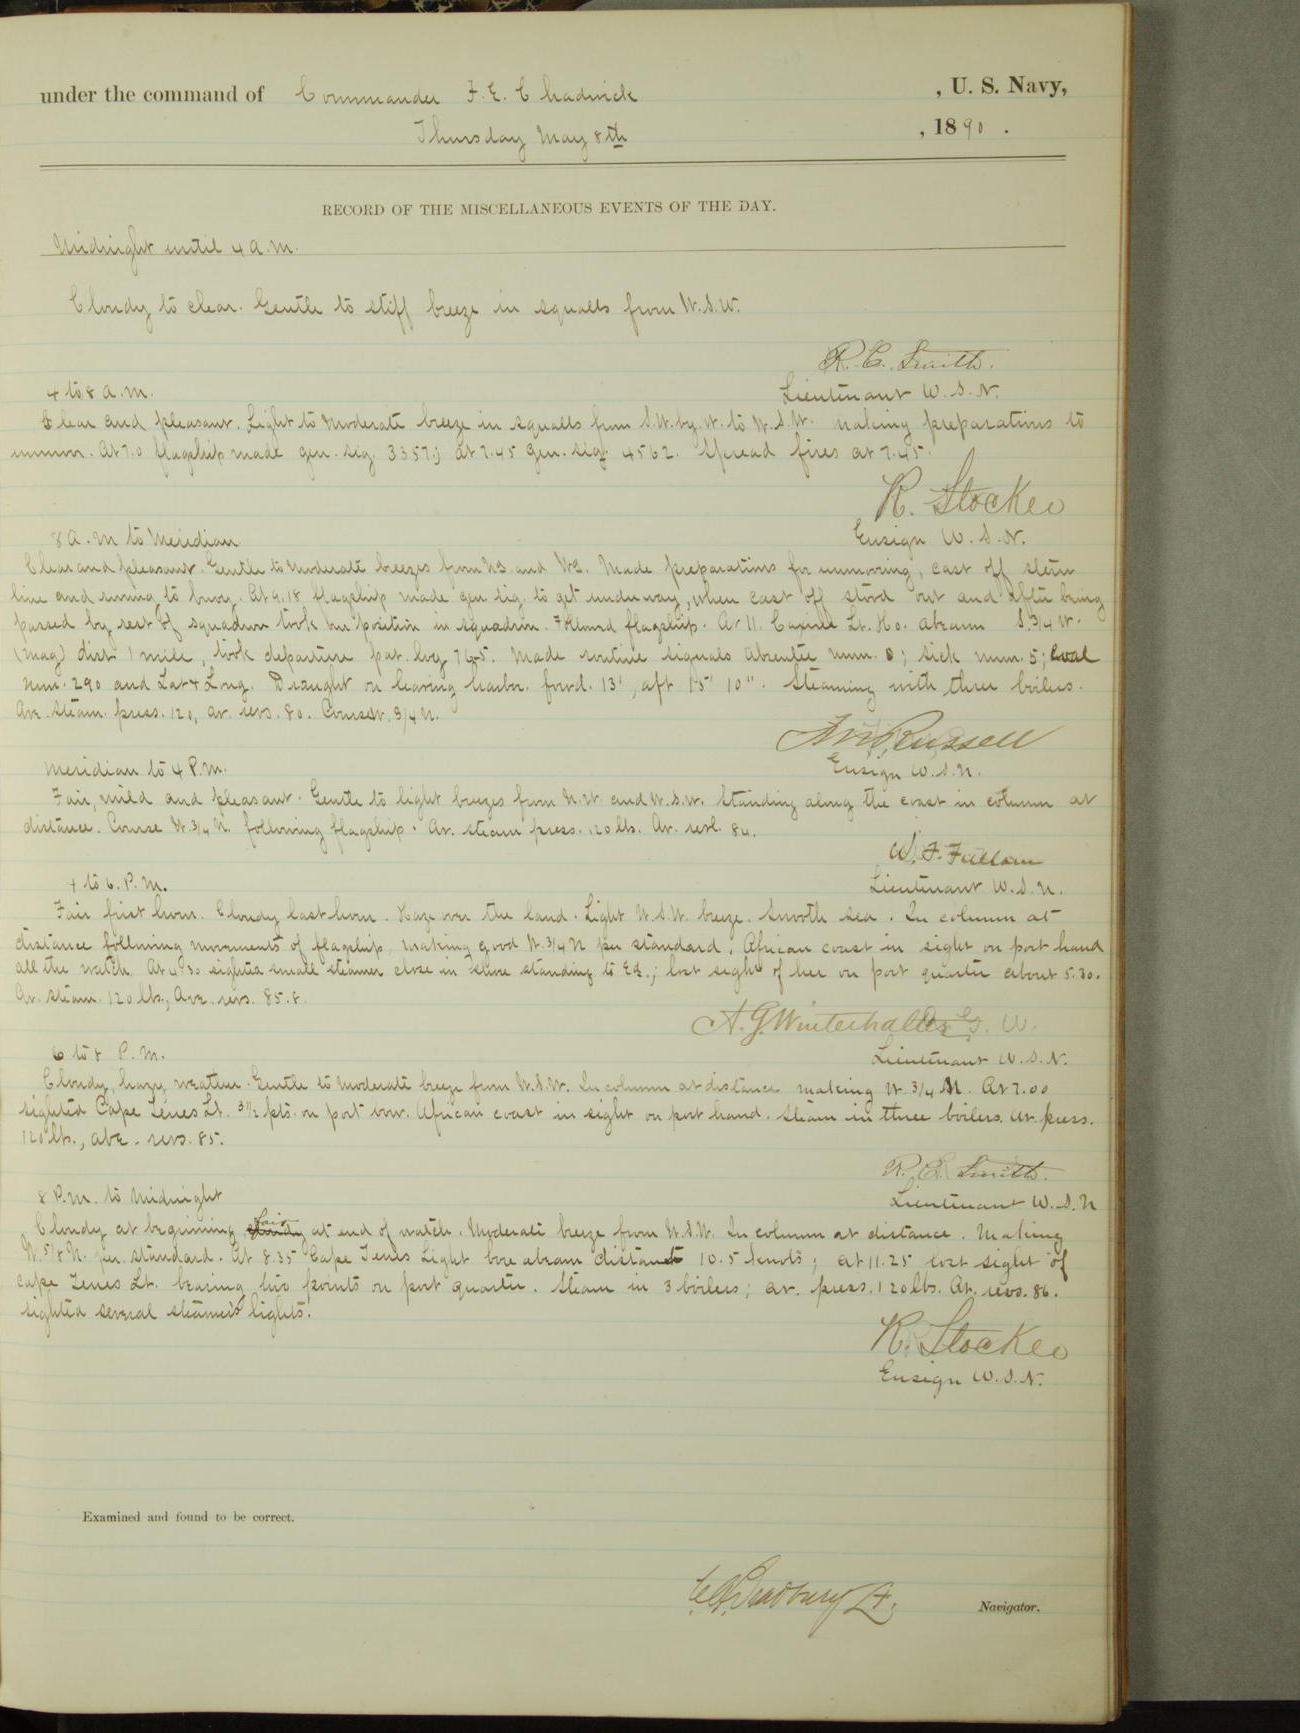 under the command of Commander F. E. Chadwick , U. S. Navy,
Thursday May 8th , 1890 .
RECORD OF THE MISCELLANEOUS EVENTS OF THE DAY.
Midnight until 4 a.m.
Cloudy to clear. Gentle to stiff breeze in squalls from W.S.W.
R. C. Smith.
Lieutenant U.S.N.
4 to 8 a.m.
Clear and pleasant. Light to moderate breeze in squalls from S.W. by W. to W.S.W. Making preparations to
unmoor. At 7.0 flagship made gen. sig. 3357; at 7.45 gen. sig. 4562. Spread fires at 7.45.
R. Stocker
Ensign U.S.N.
8 a.m to Meridian
Clear and pleasant. Gentle to moderate breezes from and Made preparations for unmooring, cast off stern
line and to buoy. At 9.18 flagship made gen sig. to get underway, when cast off stood out and after being
passed by rest of squadron took our position in squadron. Followed flagship. At 11. Caxine Lt. Ho. abeam S. 3/4 W.
(mag) dist. 1 mile, took departure pat. log 74.5. Made routine signals absentee num. 0; sick num. 5; coal
num. 290 and Lat & Long. Draught on leaving harbor. forwd. 13', aft 15' 10". Steaming with three boilers.
Ave. steam. press. 120, av. revs. 80. Course W. 3/4 N.
Russell
Ensign U.S.N.
Meridian to 4 P.M.
Fair, mild and pleasant. Gentle to light breezes from N.W. and W.S.W. Standing along the coast in column at
distance. Course W. 3/4 N. following flagship. Av. steam press. 120 lbs. Av. revl. 84.
W. F. Fullam
Lieutenant U.S.N.
4 to 6. P.M.
Fair first hour. Cloudy last hour. Haze over the land. Light W.S.W. breeze. Smooth sea. In column at
distance following movements of flagship, making good W. 3/4 N per standard. African coast in sight on port hand
all the watch. At 4.30 sighted small steamer close in shore standing to Ed.; lost sight of her on port quarter about 5.30.
Av. steam. 120 lbs, Ave. revs. 85.8.
A. G. Winterhalter
Lieutenant U.S.N.
6 to 8 P.M.
Cloudy, hazy weather. Gentle to moderate breeze from W.S.W. In column at distance making W. 3/4 N. At 7.00
sighted Cape Tenes Lt. 3 1/2 pts. on port bow. African coast in sight on port hand. Steam in three boilers. av. press.
120 lbs., ave. revs. 85.
R. C. Smith.
Lieutenant U.S.N
8 P.M. to Midnight
Cloudy at beginning, fair at end of watch. Moderate breeze from W.S.W. In column at distance. Making
W. 5/8 N. per. standard. At 8.35 Cape Tenes Light bore abeam distant 10.5 knots; at 11.25 lost sight of
Cape Tenes Lt. bearing two points on port quarter. Steam in 3 boilers; av. press. 120 lbs. Av. revs. 86.
Sighted several steamer's lights.
R. Stocker
Ensign U.S.N.
Examined and found to be correct.
Navigator.